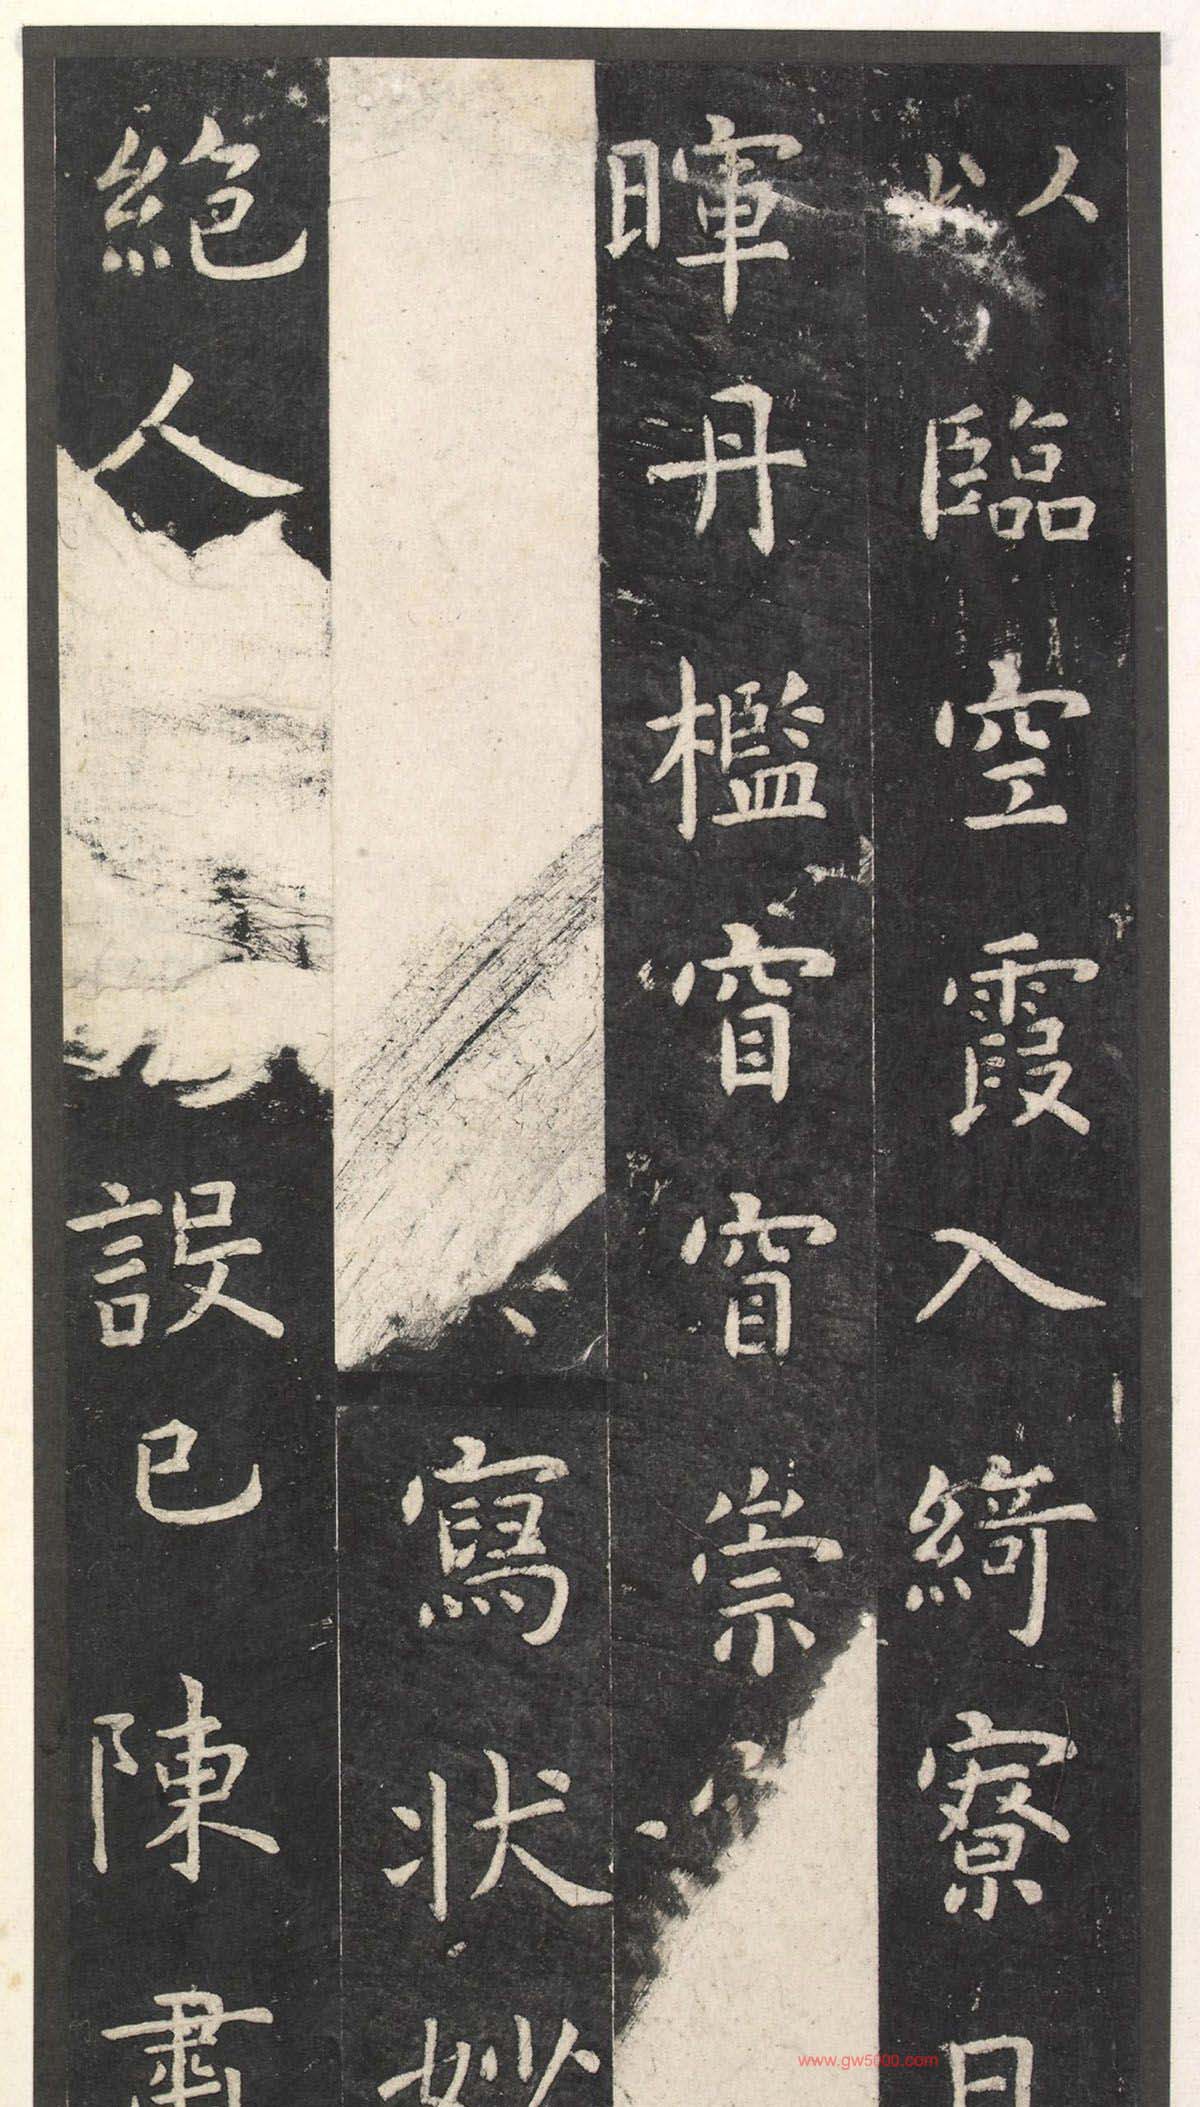 以臨空霞入綺寮日
暉丹檻窅窅崇
寫狀妙
絕人誤已陳肅
www.gw5000.com